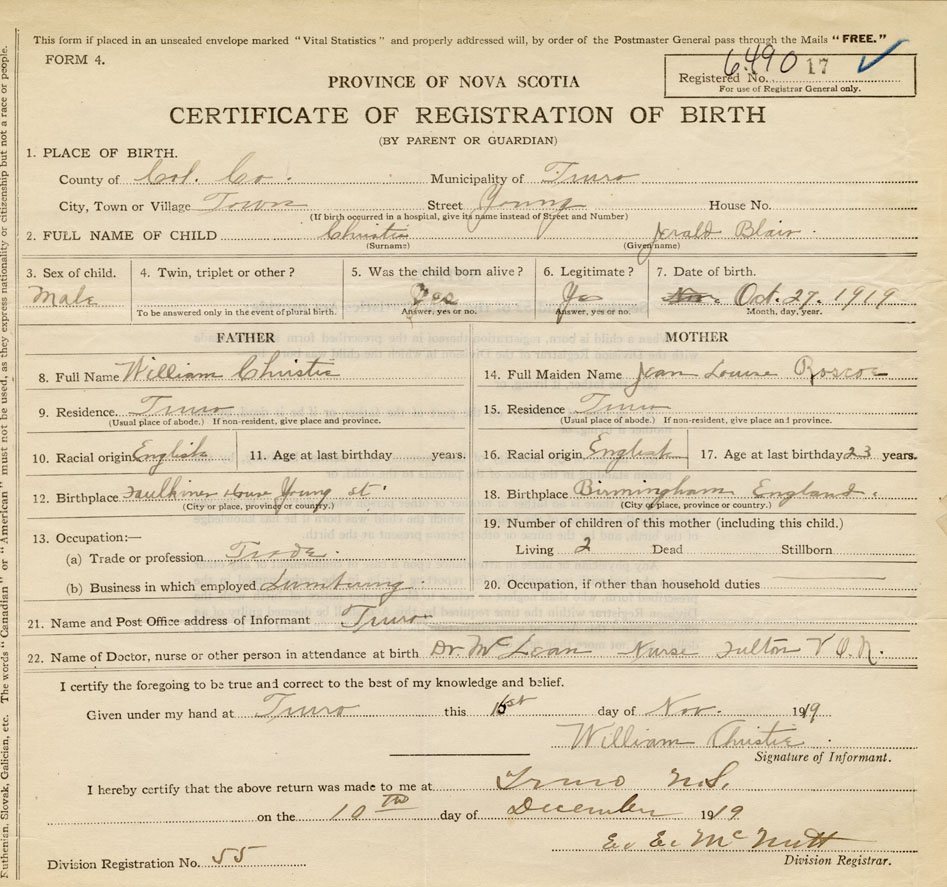 This form if placed in an unsealed envelope marked "Vital Statistics" and properly addressed will, by order of the Postmaster General pass through the Mails "FREE."
FORM 4.
6490 17
Registered No.
For use of Registrar General only.
PROVINCE OF NOVA SCOTIA
CERTIFICATE OF REGISTRATION OF BIRTH
(BY PARENT OR GUARDIAN)
1. PLACE OF BIRTH.
County of Col. Co. Municipality of Truro
City, Town or Village Town Street Young House No.
(If birth occurred in a hospital, give its name instead of Street and Number)
2. FULL NAME OF CHILD Christie Jerald Blair.
(Surname) (Given name)
3. Sex of child. 4. Twin, triplet or other? 5. Was the child born alive? 6. Legitimate? 7. Date of birth.
Male Yes Yes Oct. 27. 1919
To be answered only in the event of plural birth. Answer, yes or no. Answer, yes or no. Month, day, year.
FATHER
8. Full Name William Christie
9. Residence Truro
(Usual place of abode.) If non-resident, give place and province.
10. Racial origin English 11. Age at last birthday years.
12. Birthplace Faulkiner House Young st
(City or place, province or country.)
13. Occupation:—
(a) Trade or profession Trade.
(b) Business in which employed
MOTHER
14. Full Maiden Name Jean Louise Roscoe
15. Residence Truro
(Usual place of abode.) If non-resident, give place and province.
16. Racial origin English 17. Age at last birthday 23 years.
18. Birthplace Birmingham England.
(City or place, province or country.)
19. Number of children of this mother (including this child.)
Living 2 Dead Stillborn
20. Occupation, if other than household duties
21. Name and Post Office address of Informant Truro
22. Name of Doctor, nurse or other person in attendance at birth Dr. McLean Nurse Fulton V.O.N.
I certify the foregoing to be true and correct to the best of my knowledge and belief.
Given under my hand at Truro this day of Nov. 1919
William Christie.
Signature of Informant.
I hereby certify that the above return was made to me at Truro N.S.
on the 10TH day of December 1919
E. E. McNutt
Division Registration No. 55 Division Registrar.
Ruthenian, Slovak, Galician, etc. The words "Canadian" or "American" must not be used, as they express nationality or citizenship but not a race or people.